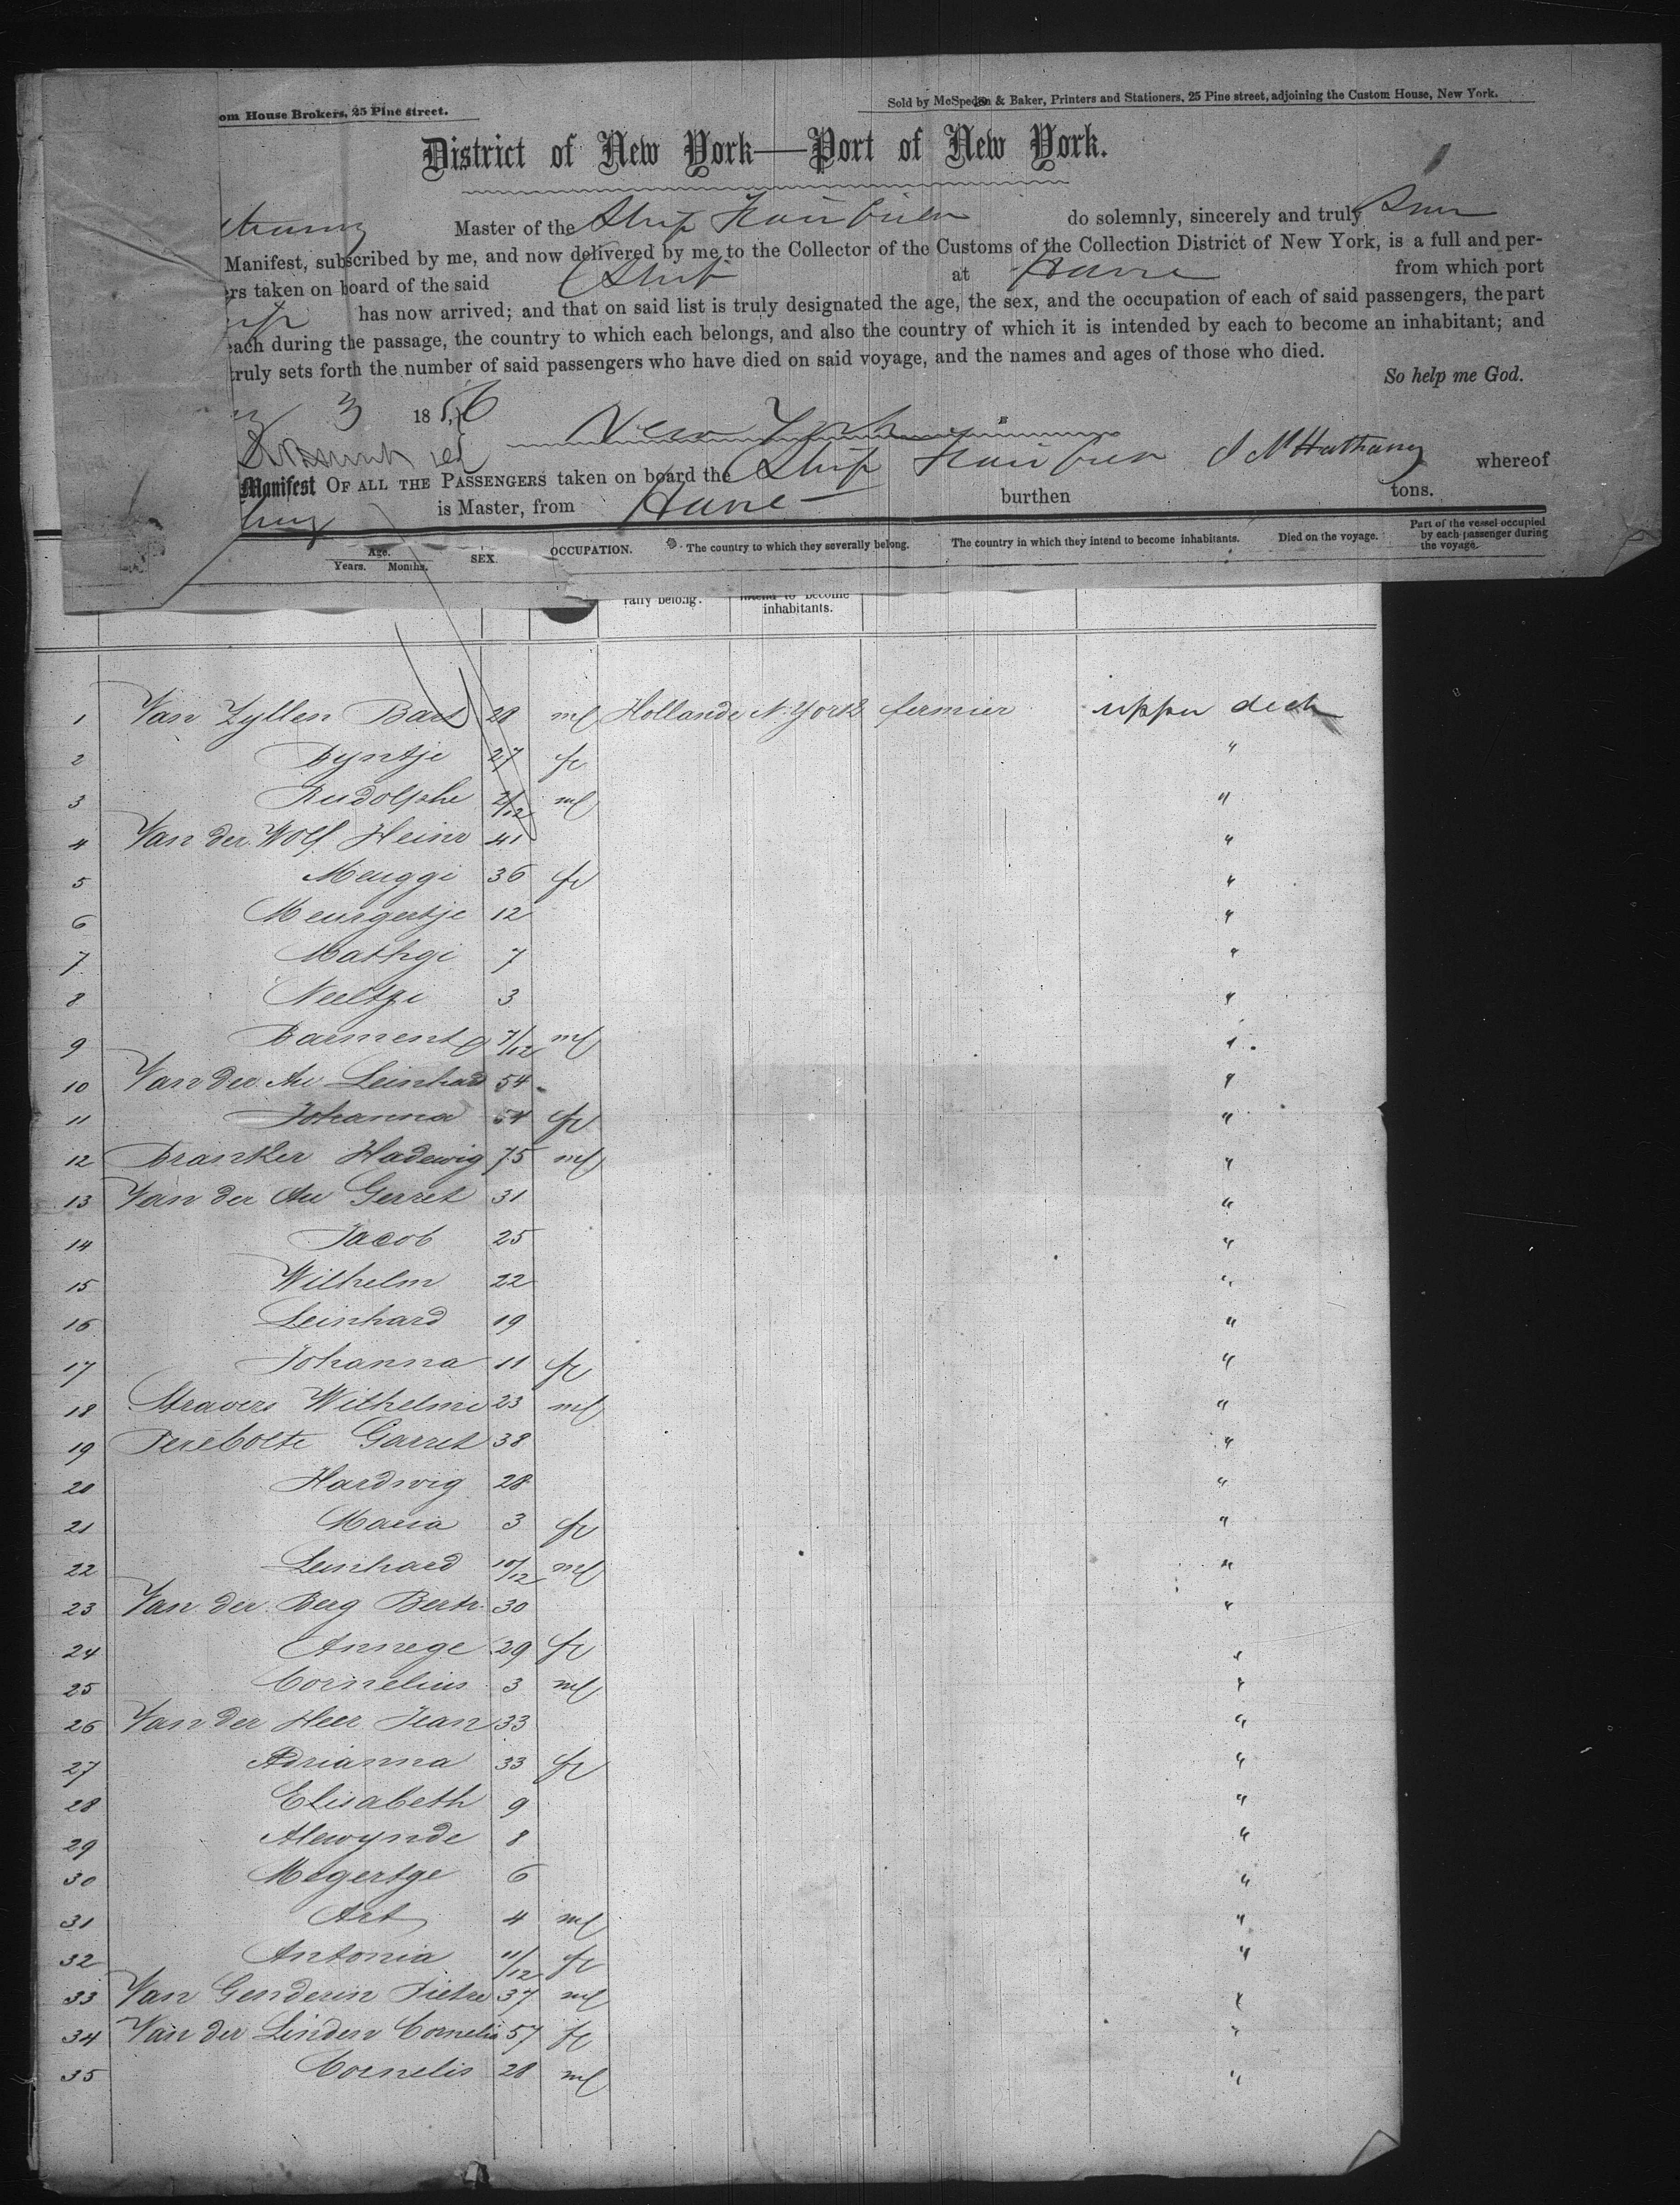 om House Brokers, 25 Pine street.
Sold by McSpedon & Baker, Printers and Stationers, 25 Pine street, adjoining the Custom House, New York.
District of New York—Port of New York.
Master of the Ship do solemnly, sincerely and truly
Manifest, subscribed by me, and now delivered by me to the Collector of the Customs of the Collection District of New York, is a full and per-
ers taken on board of the said Ship at Havre from which port
has now arrived; and that on said list is truly designated the age, the sex, and the occupation of each of said passengers, the part
each during the passage, the country to which each belongs, and also the country of which it is intended by each to become an inhabitant; and
truly sets forth the number of said passengers who have died on said voyage, and the names and ages of those who died.
So help me God.
3 1856
New York
Manifest OF ALL THE PASSENGERS taken on board the Ship whereof
is Master, from Havre burthen tons.
Age. Years. Months. SEX. OCCUPATION. The country to which they severally belong. The country in which they intend to become inhabitants. Died on the voyage. Part of the vessel occupied by each passenger during the voyage.
rally belong. intend to become
inhabitants.
1 Van Zyllen Bart 28 ml Hollande N. York fermier upper deck
2 Dyntje 27 fe "
3 Rudolphe 2/12 ml "
4 Van der Wolf Heinr 41 "
5 Meuggi 36 fe "
6 Meusgertje 12 "
7 Mathgi 7 "
8 Neeltje 3 "
9 7/12 ml "
10 Van der Au Leinhard 54 "
11 Johanna 54 fe "
12 Branker Hadewig 75 ml "
13 Van der Au Gerret 31 "
14 Jacob 25 "
15 Wilhelm 22 "
16 Leinhard 19 "
17 Johanna 11 fe "
18 Stravers Wilhelmi 23 ml "
19 Garret 38 "
20 Hardwig 28 "
21 Maria 3 fe "
22 Leinhard 10/12 ml "
23 Van der Berg Bertr. 30 "
24 Annege 29 fe "
25 Cornelius 3 ml "
26 Van der Heer Jean 33 "
27 Adrianna 33 fe "
28 Elisabeth 9 "
29 Alewynde 8 "
30 Megertge 6 "
31 Art 4 ml "
32 Antonia 11/12 fe "
33 Van Genderin Pietre 37 ml "
34 Van der Linden Cornelia 57 fe "
35 Cornelis 28 ml "